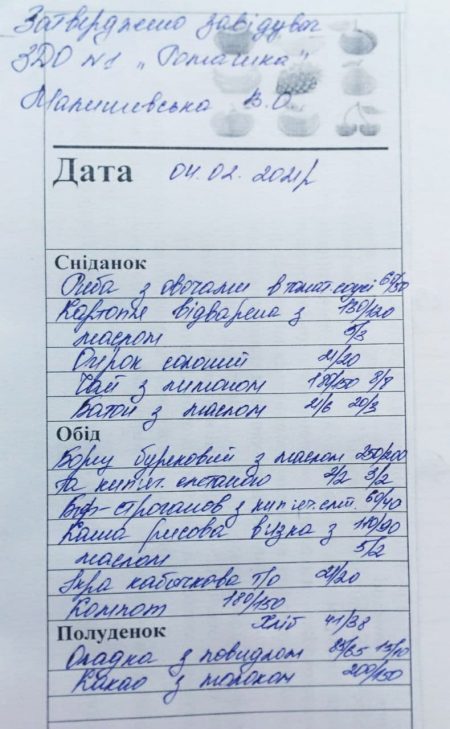 Затверджено завідувач
ЗДО №1 „Ромашка"
Малишевська В.О.
Дата 04.02.2021р
Сніданок
Риба з овочами в томат соусі 65/50
Картопля відварена з 130/120
маслом 5/3
Огірок солоний 21/20
Чай з лимоном 180/150 8/8
Батон з маслом 21/6 20/3
Обід
Борщ буряковий з маслом 250/200
та кип'ят. сметаною 2/2 3/2
Беф-строганов з кип'ят. смт. 60/40
Каша рисова в'язка з 110/90
маслом 5/2
Ікра кабачкова п/о 21/20
Компот 180/150
Хліб 41/38
Полуденок
Оладка з повидлом 85/65 15/10
Какао з молоком 200/150